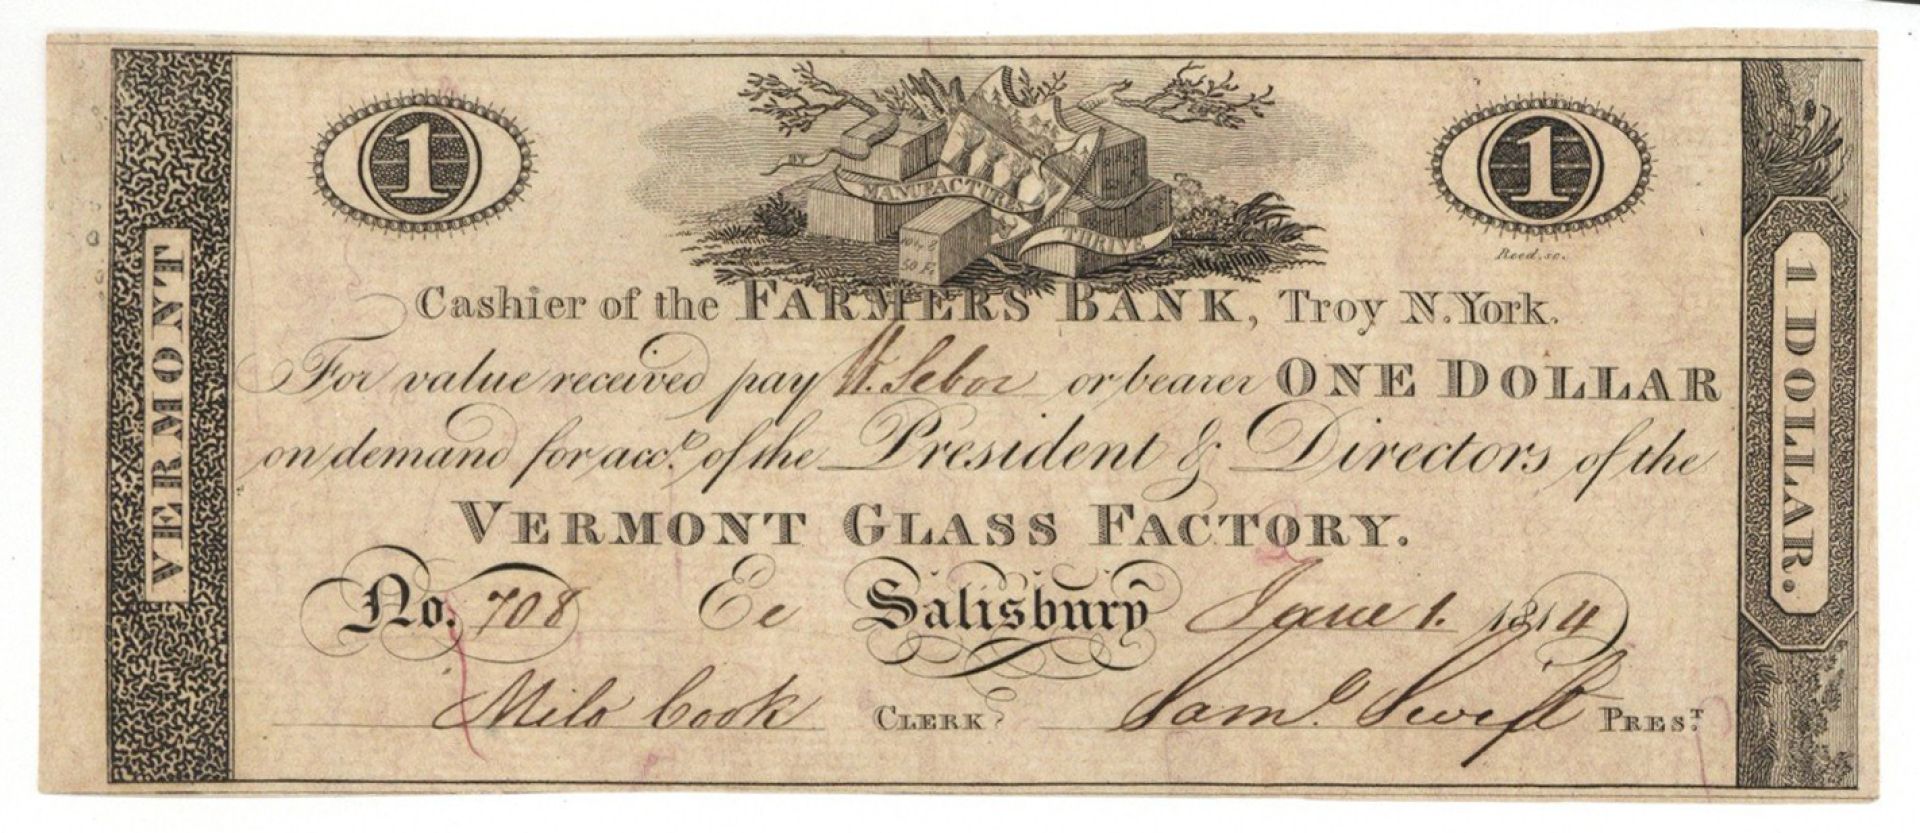 1
1
BY MANUFACTURES
THRIVE
50 Ft
Reed. sc.
VERMONT
1 DOLLAR.
Cashier of the FARMERS BANK, Troy N.York.
For value received pay W. Sebor or bearer ONE DOLLAR
on demand for acct. of the President & Directors of the
VERMONT GLASS FACTORY.
No. 708 Ee Salisbury June 1. 1814
Milo Cook CLERK Saml. Swift PREST.